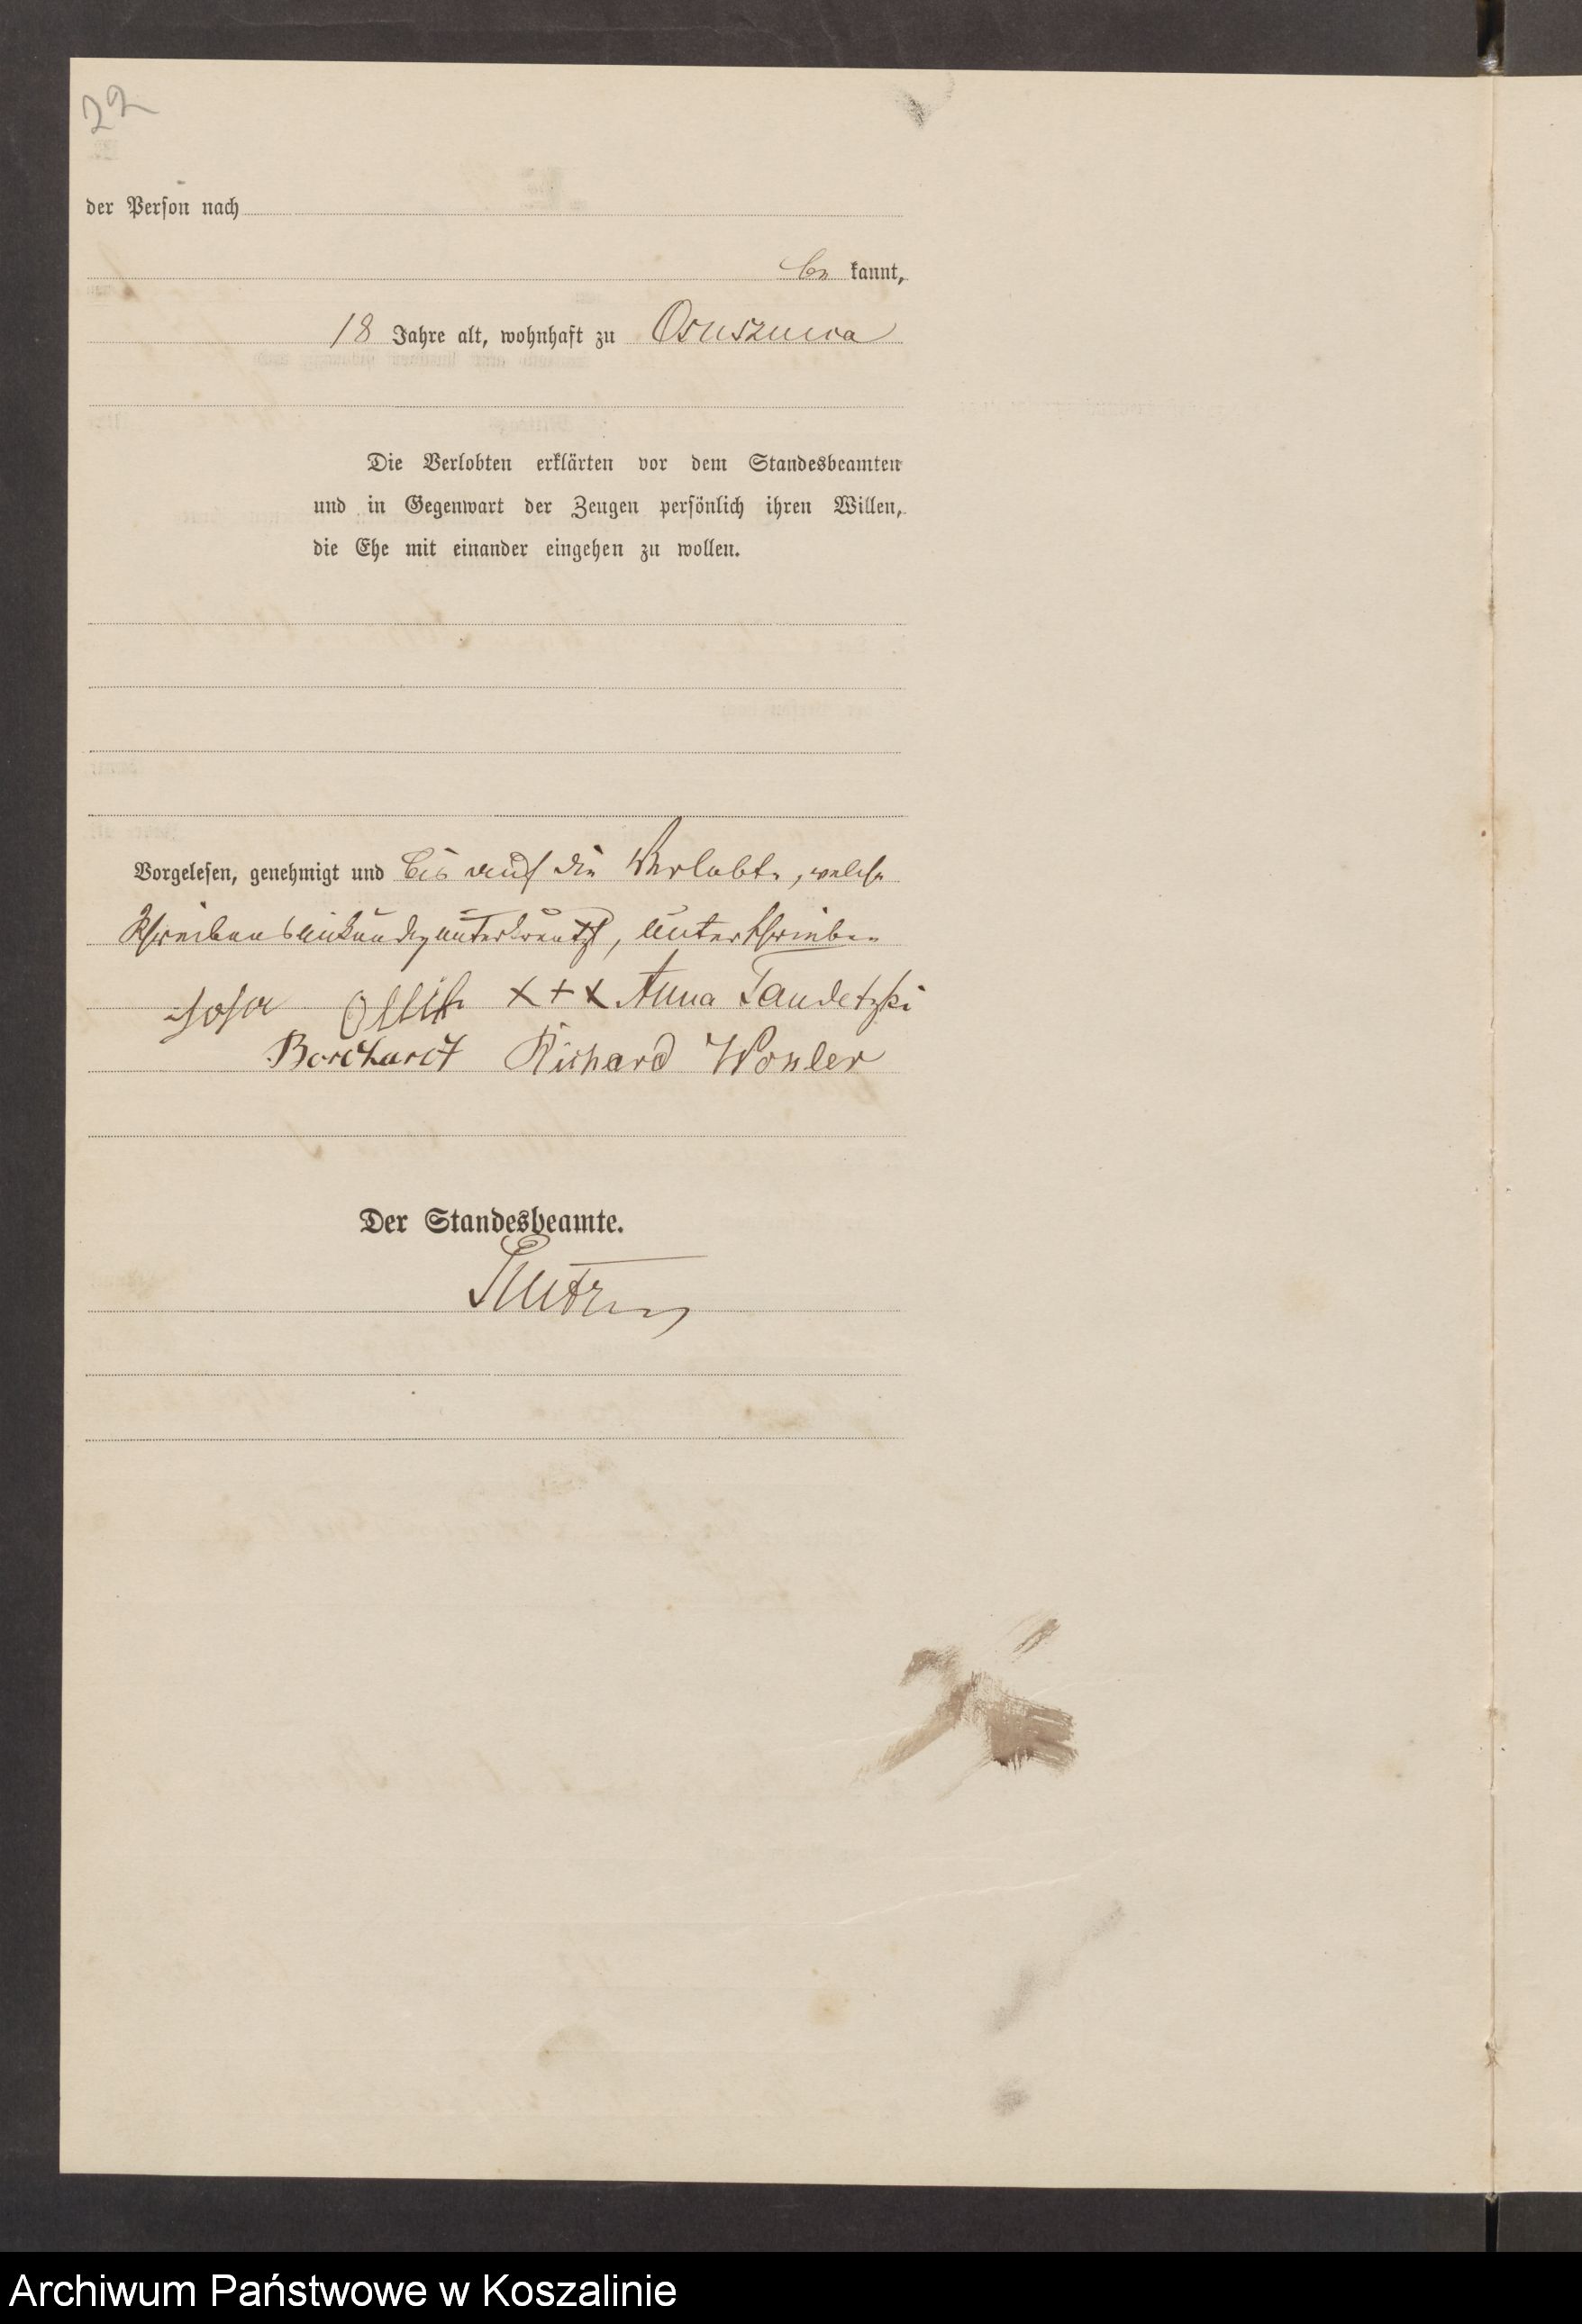 22
der Person nach
be kannt,
18 Jahre alt, wohnhaft zu Osuszniça
Die Verlobten erklärten vor dem Standesbeamten
und in Gegenwart der Zeugen persönlich ihren Willen,
die Ehe mit einander eingehen zu wollen.
Vorgelesen, genehmigt und bis auf die Verlobte, welche
Schreibensunkundig unterkreutzt, unterschrieben
+++ Anna Taudetzki
Borchardt Richard
Der Standesbeamte.
Archiwum Państwowe w Koszalinie